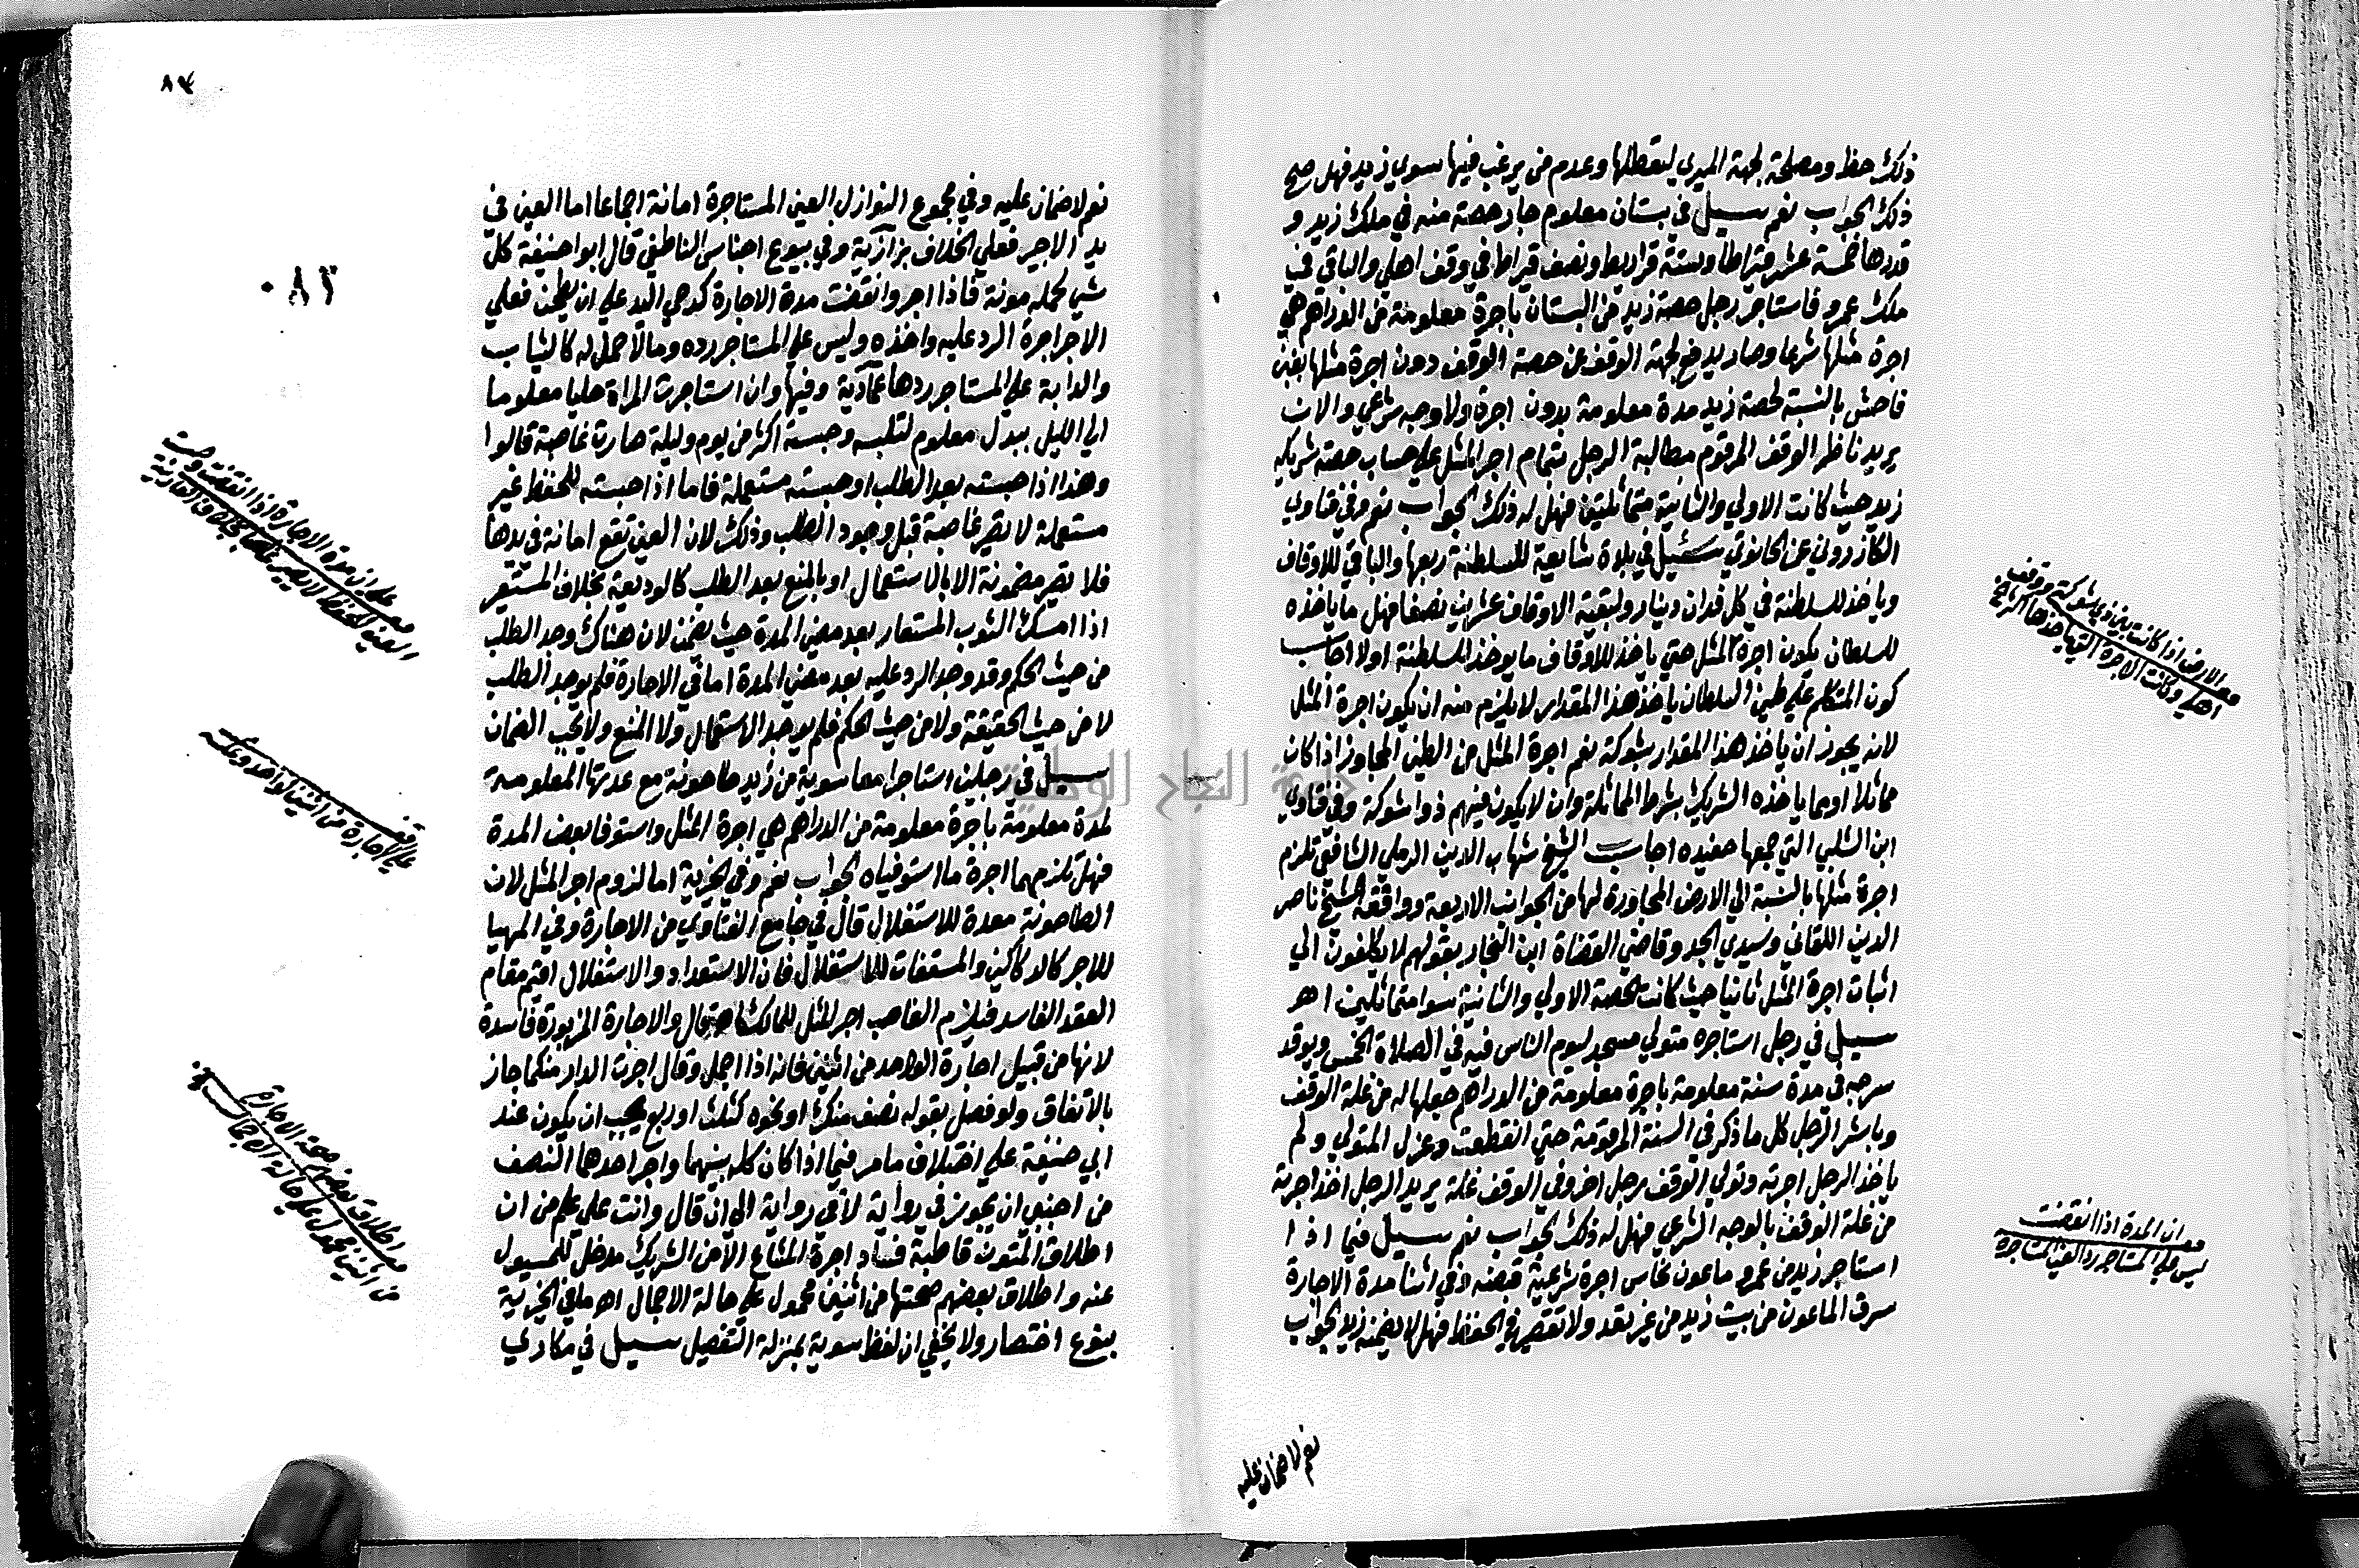 ذلك حظ ومصلحة لجهة الميري لتعطلها وعدم من يرغب فيها سوي زيد فهل صح
ذلك الجواب نعم سيل في بستان معلوم جار حصة منه في ملك زيد و
قدرها خمسة عشر قيراطا وستة قراريط ونصف قيراط في وقف اهلي والباقي في
ملك عمرو فاستاجر رجل حصة زيد من البستان باجرة معلومة من الدراهم هي
اجرة مثلها شرعا وصار يدفع لجهة الوقف عن حصة الوقف دون اجرة مثلها بغبن
فاحش بالنسبة لحصة زيد مدة معلومة بدون اجرة ولا وجه شرعي والان
يريد ناظر الوقف المرقوم مطالبة الرجل بتمام اجر المثل علي حساب حصة شريكه
زيد حيث كانت الاولي والثانية متماثلتين فهل له ذلك الجواب نعم وفي فتاوي
الكازروني عن الحانوتي سئيل في بلاة شايعة للسلطنة ربعها والباقي للاوقاف
وياخذ للسلطنة في كل فدان دينار ولبقية الاوقاف عشرين نصفا فهل ما ياخذه
للسلطان يكون اجرة المثل حتي ياخذ للاوقاف ما يوخذ للسلطنة اولا اجاب
كون المتكلم علي طين السلطان ياخذ هذا المقدار لا يلزم منه ان يكون اجرة المثل
لانه يجوز ان ياخذ هذا المقدار بشوكة نعم اجرة المثل من الطين المجاور اذا كان
مماثلا او بما ياخذه الشريك بشرط المماثلة وان لا يكون فيهم ذوا شوكة وفي فتاوي
ابن الشلبي التي جمعها حفيده اجاب الشيخ شهاب الدين الرملي الشافعي تلزم
اجرة مثلها بالنسبة الي الارض المجاورة لها من الجوانب الاربعة ووافقه الشيخ ناصر
الدين اللقاني وسيدي الجد وقاضي القضاة ابن النجار بقولهم لا يكلفون الي
اثبات اجرة المثل ثانيا حيث كانت الحصة الاولي والثانية سوا متماثلين اهر
سيل في رجل استاجره متولي مسجد ليوم الناس فيه في الصلاة الخمس ويوقد
سرجه في مدة سنة معلومة باجرة معلومة من الدراهم جعلها له من غلة الوقف
وباشر الرجل كل ما ذكر في السنة المرقومة حتي انقطعت وعزل المتولي ولم
ياخذ الرجل اجرته وتولي الوقف رجل اخر وفي الوقف غلة يريد الرجل اخذ اجرته
من غلة الوقف بالوجه الشرعي فهل له ذلك الجواب نعم سيل فيما اذا
استاجر زيد من عمرو ماعون نحاس اجرة شرعية قبضه في اثنا مدة الاجارة
سرق الماعون من بيت زيد من غير تعد ولا تقصير في الحفظ فهل لا يضمنه زيد الجواب
نعم لا ضمان عليه
مع الارض اذا كانت بين ذي شوكة ووقف
اهلي وكانت الاجرة التي ياخذها
مع ان المدة اذا انقضت
ليس علي المستاجر رد العين المستاجرة
٨٣
٠٨٣
نعم لا ضمان عليه وفي مجموع النوازل العين المستاجرة امانة اجماعا اما العين في
يد الاجير فعلي الخلاف بزازية وفي بيوع اجناس الناطفي قال ابو حنيفة كل
شي لحمله مونة فاذا اجر وانقضت مدة الاجارة كرحي اليد علي ان يطحن فعلي
الاجر اجرة الرد عليه واخذه وليس علي المستاجر رده ومالا حمل له كالثياب
والدابة علي المستاجر ردها عمادية وفيها وان استاجرت المراة حليا معلوما
الي الليل ببدل معلوم لتلبسه وحبسته اكثر من يوم وليلة صارت غاصبة قالوا
وهذا اذا حبسته بعد الطلب او حبسته مستعملة فاما اذا حبسته للحفظ غير
مستعملة لا تصير غاصبة قبل وجود الطلب وذلك لان العين تقع امانة في يدها
فلا تصير مضمونة الا بالاستعمال او بالمنع بعد الطلب كالوديعة بخلاف المستعير
اذا امسك الثوب المستعار بعد مضي المدة حيث يضمن لان هناك وجد الطلب
من حيث الحكم وقد وجد الرد عليه بعد مضي المدة اما في الاجارة فلم يوجد الطلب
لا من حيث الحقيقة ولا من حيث الحكم فلم يوجد الاستعمال ولا المنع ولا يجب الضمان
سيل في رجلين استاجرا معا سوية من زيد طاحونة مع عدتها المعلومة
لمدة معلومة باجرة معلومة من الدراهم هي اجرة المثل واستوفا بعض المدة
فهل تلزمهما اجرة ما استوفياه الجواب نعم وفي الخيرية اما لزوم اجر المثل لان
الطاحونة معدة للاستغلال قال في جامع الفتاوي من الاجارة وفي المهيا
للاجر كالدكاكين والمسقفات للاستغلال فان الاستعداد والاستغلال اقيم مقام
العقد الفاسد فيلزم الغاصب اجر المثل للمالك قال والاجارة المزبورة فاسدة
لانها من قبيل اجارة الواحد من اثنين فانه اذا اجمل وقال اجرت الدار منكما جاز
بالاتفاق ولو فصل بقوله نصف منك او نحوه كثلث او ربع يجب ان يكون عند
ابي حنيفة علي اختلاف ما مر فيما اذا كان كله بينهما واجر احدهما النصف
من اجنبي ان يجوز في رواية لا في رواية الي ان قال وانت علي علم من ان
اطلاق المتون قاطبة فساد اجرة المشاع الا من الشريك مدخل للمسيول
عنه واطلاق بعضهم صحتها من اثنين محمول علي حالة الاجمال اهر ما في الخيرية
بنوع اختصار ولا يخفي ان لفظ سوية بمنزلة التفصيل سيل في مكاري
مع ان مدة الاجارة اذا انقضت وحبست
علي الاجارة من اثنين
مع اطلاق بعضهم صحة الاجارة
من اثنين محمول علي حالة
جامعة النجاح الوطنية